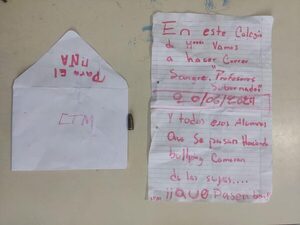 Para El
UNA
ETM
En este Colegio
de y*** Vamos
a hacer Correr
Sangre. Profesores
20/06/2024
Y todos esos Alumnos
Que Se pasan Haciendo
bullying Comeran
de las suyas....
¡¡QUE Pasen bn!!